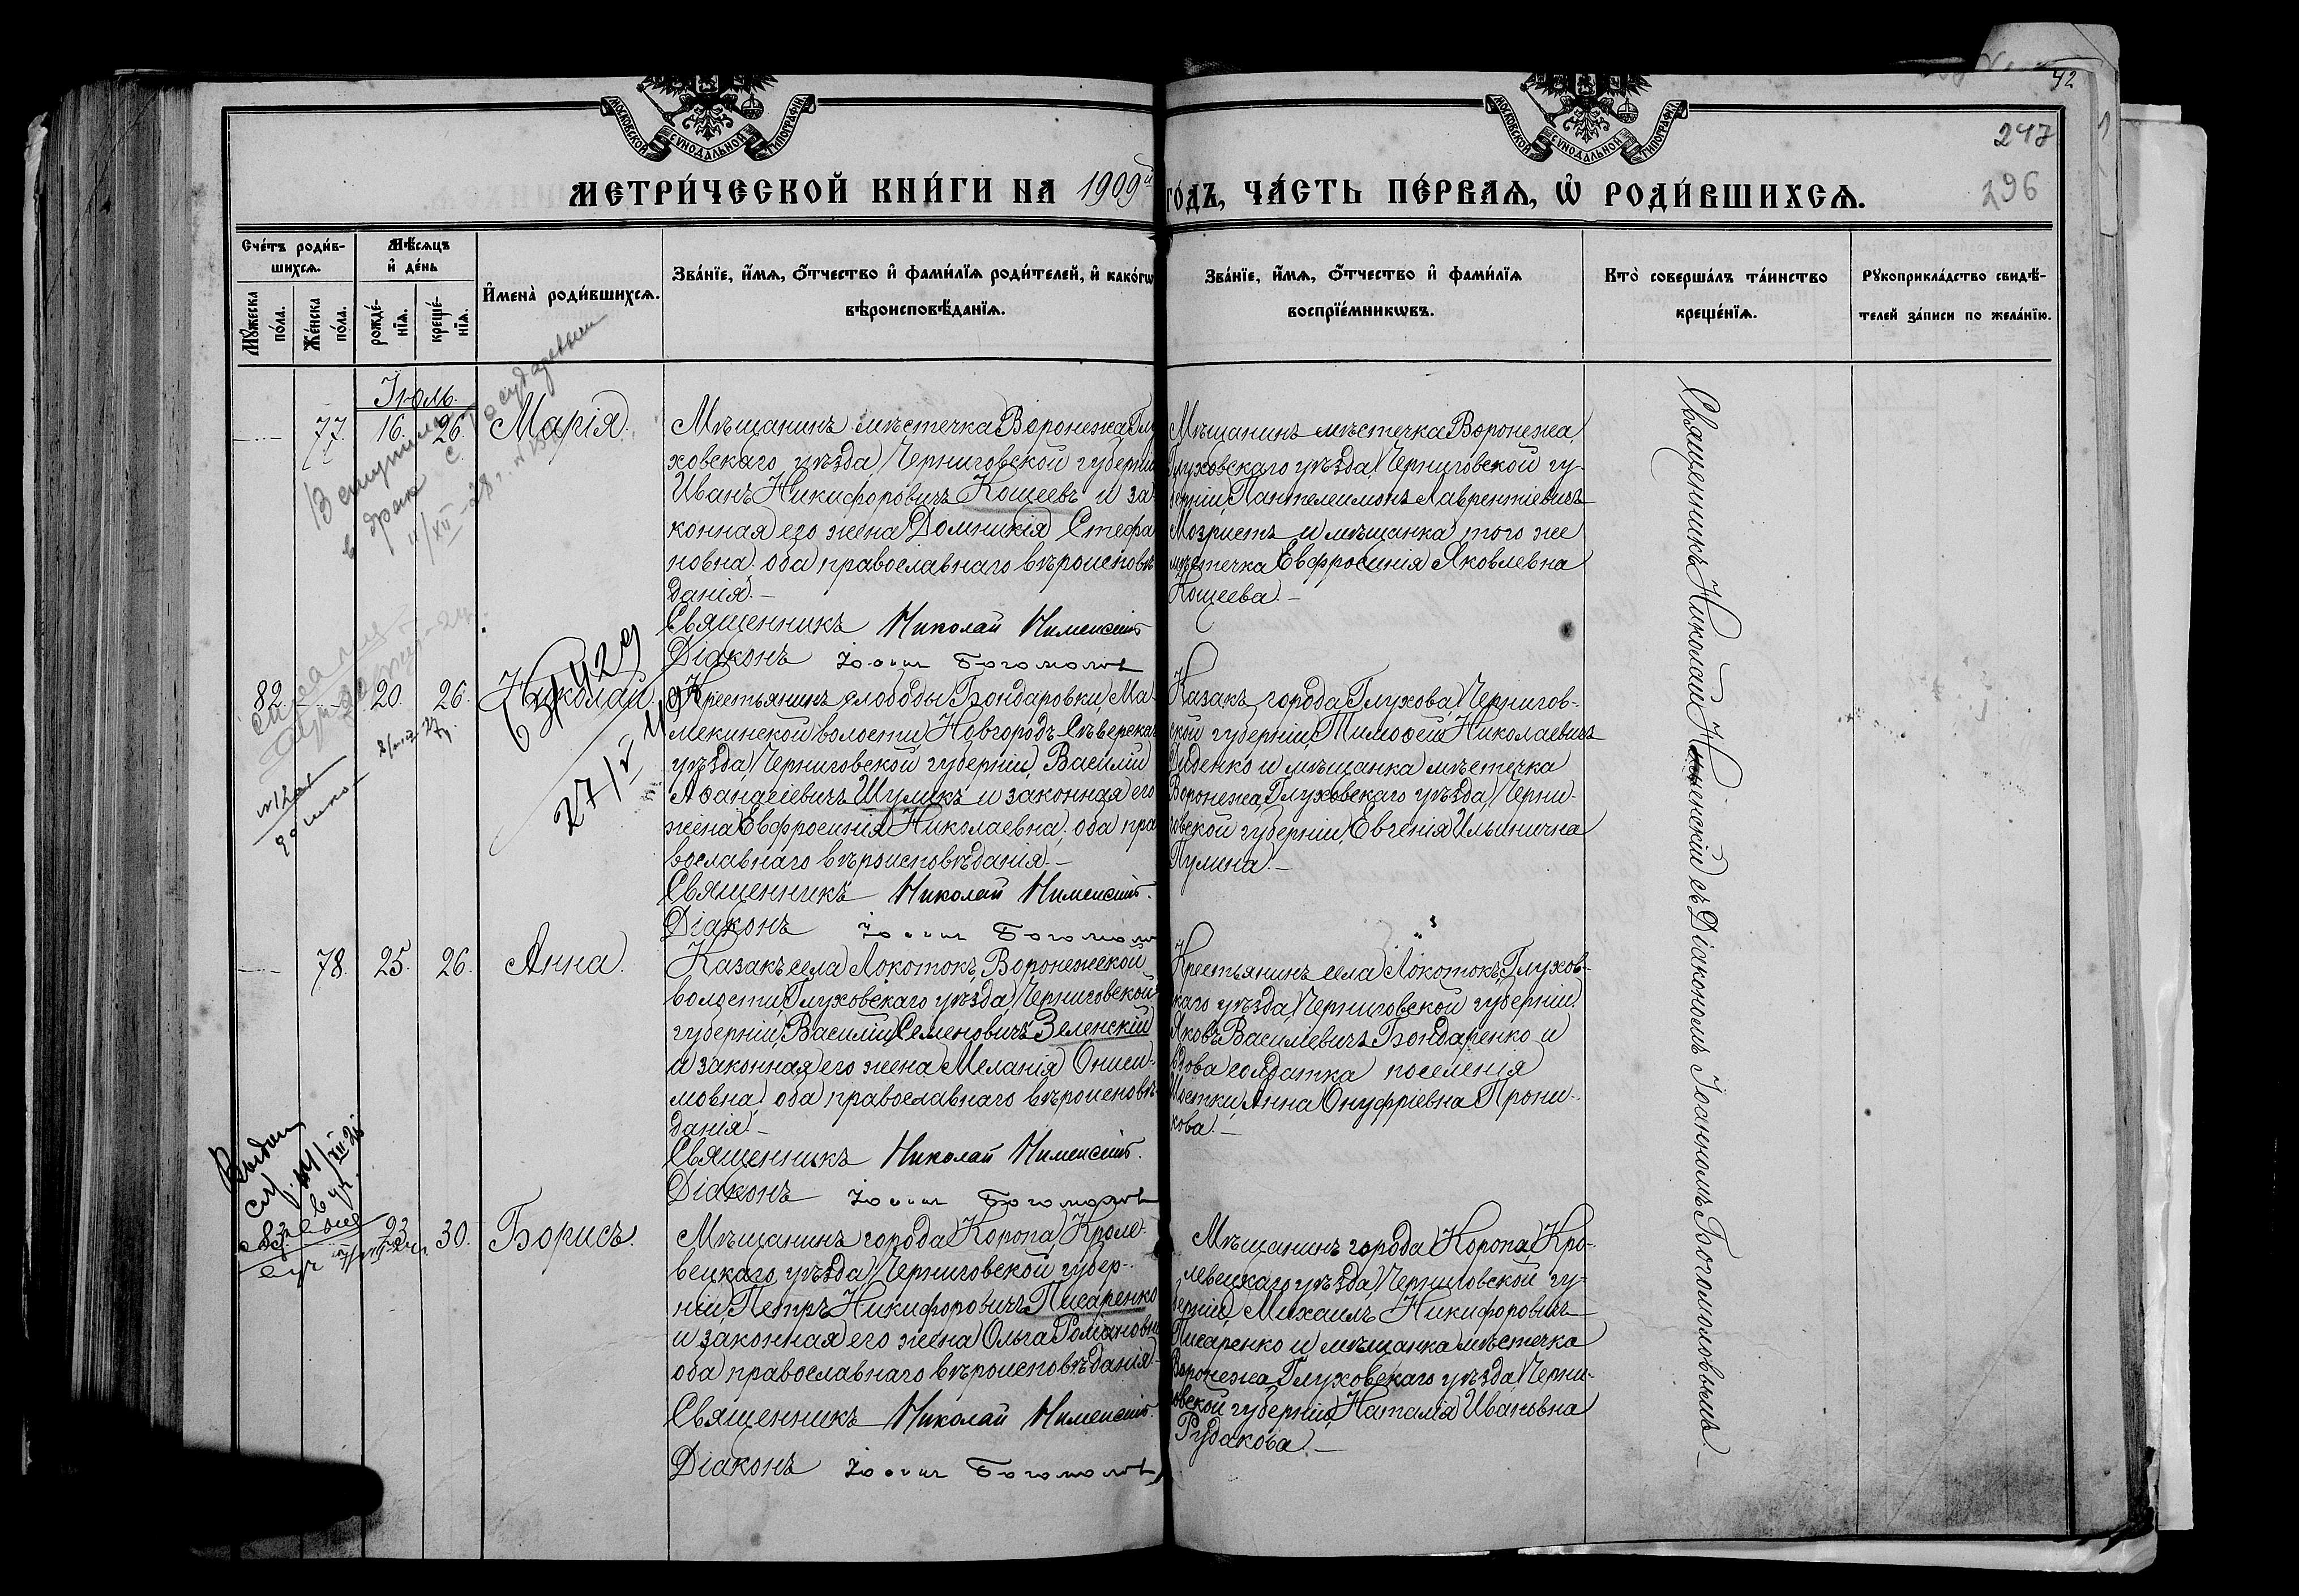 42
247
296
МОСКОВСКОЙ СѴНОДАЛЬНОЙ ТИПОГРАФІИ
МОСКОВСКОЙ СѴНОДАЛЬНОЙ ТИПОГРАФІИ
МЕТРИ́ЧЕСКОЙ КНИ́ГИ НА 1909й ГО́ДЪ, ЧА́СТЬ ПЕ́РВАѦ, Ѡ҆ РОДИ́ВШИХСѦ.
Сче́тъ роди́в-
шихсѧ.
Мꙋ́жеска по́ла.
Же́нска по́ла.
Мѣ́сѧцъ
и҆ де́нь
рожде́-
нїѧ.
креще́-
нїѧ.
И҆мена̀ роди́вшихсѧ.
Зва́нїе, и҆́мѧ, ѻ҆́тчество и҆ фами́лїѧ роди́телей, и҆ како́гѡ
вѣроисповѣ́данїѧ.
Зва́нїе, и҆́мѧ, ѻ҆́тчество и҆ фами́лїѧ
воспрїе́мникѡвъ.
Кто̀ соверша́лъ та́инство
креще́нїѧ.
Рꙋкоприкла́дство свидѣ́-
телей за́писи по жела́нїю.
Іюль.
77. 16. 26. Марія.
Мѣщанинъ мѣстечка Воронежа Глу
ховскаго уѣзда, Черниговской губерніи
Иванъ Никифоровичъ Кощеевъ и за-
конная его жена Домникія Стефа
новна: оба православнаго вѣроисповѣ
данія.-
Священникъ Николай
Діаконъ Іоаннъ Богомоловъ
Мѣщанинъ мѣстечка Воронежа,
Глуховскаго уѣзда, Черниговской гу-
берніи, Пантелеимонъ Лаврентіевичъ
и мѣщанка того же
мѣстечка Евфросинія Яковлевна
Кощеева.-
Вступила
в брак с
11/XII-28 г.
82. 20. 26. Николай.
Крестьянинъ слободы Бондаровки, Ма-
мекинской волости, Новгородъ-Сѣверскаго
уѣзда, Черниговской губерніи, Василій
Аѳанасіевичъ Шуликъ и законная его
жена Евфросинія Николаевна; оба пра
вославнаго вѣроисповѣданія.-
Священникъ Николай
Діаконъ Іоаннъ Богомолов
Казакъ города Глухова, Чернигов-
ской губерніи, Тимоѳей Николаевичъ
Диденко и мѣщанка мѣстечка
Воронежа, Глуховскаго уѣзда, Черни-
говской губерніи, Евгенія Ильинична
Пулина.-
78. 25. 26. Анна.
Казакъ села Локотокъ, Воронежской
волости, Глуховскаго уѣзда, Черниговской
губерніи, Василій Семеновичъ Зеленскій
и законная его жена Меланія Ониси-
мовна; оба православнаго вѣроисповѣ-
данія.-
Священникъ Николай
Діаконъ Іоаннъ Богомоловъ
Крестьянинъ села Локотокъ, Глухов-
скаго уѣзда, Черниговской губерніи,
Яковъ Василіевичъ Бондаренко и
вдова солдатка поселенія
Шостки, Анна Онуфріевна Прони-
кова.-
83. 23. 30. Борисъ.
Мѣщанинъ города Коропа, Кроле-
вецкаго уѣзда, Черниговской губер-
ніи, Петръ Никифоровичъ Писаренко
и законная его жена Ольга Романовна
оба православнаго вѣроисповѣданія.-
Священникъ Николай
Діаконъ Іоаннъ Богомоловъ
Мѣщанинъ города Коропа, Кро-
левецкаго уѣзда, Черниговской гу-
берніи, Михаилъ Никифоровичъ
Писаренко и мѣщанка мѣстечка
Воронежа, Глуховскаго уѣзда, Черни-
говской губерніи, Наталія Ивановна
Рудакова.-
Священникъ Николай съ Діакономъ Іоанномъ Богомоловымъ.-